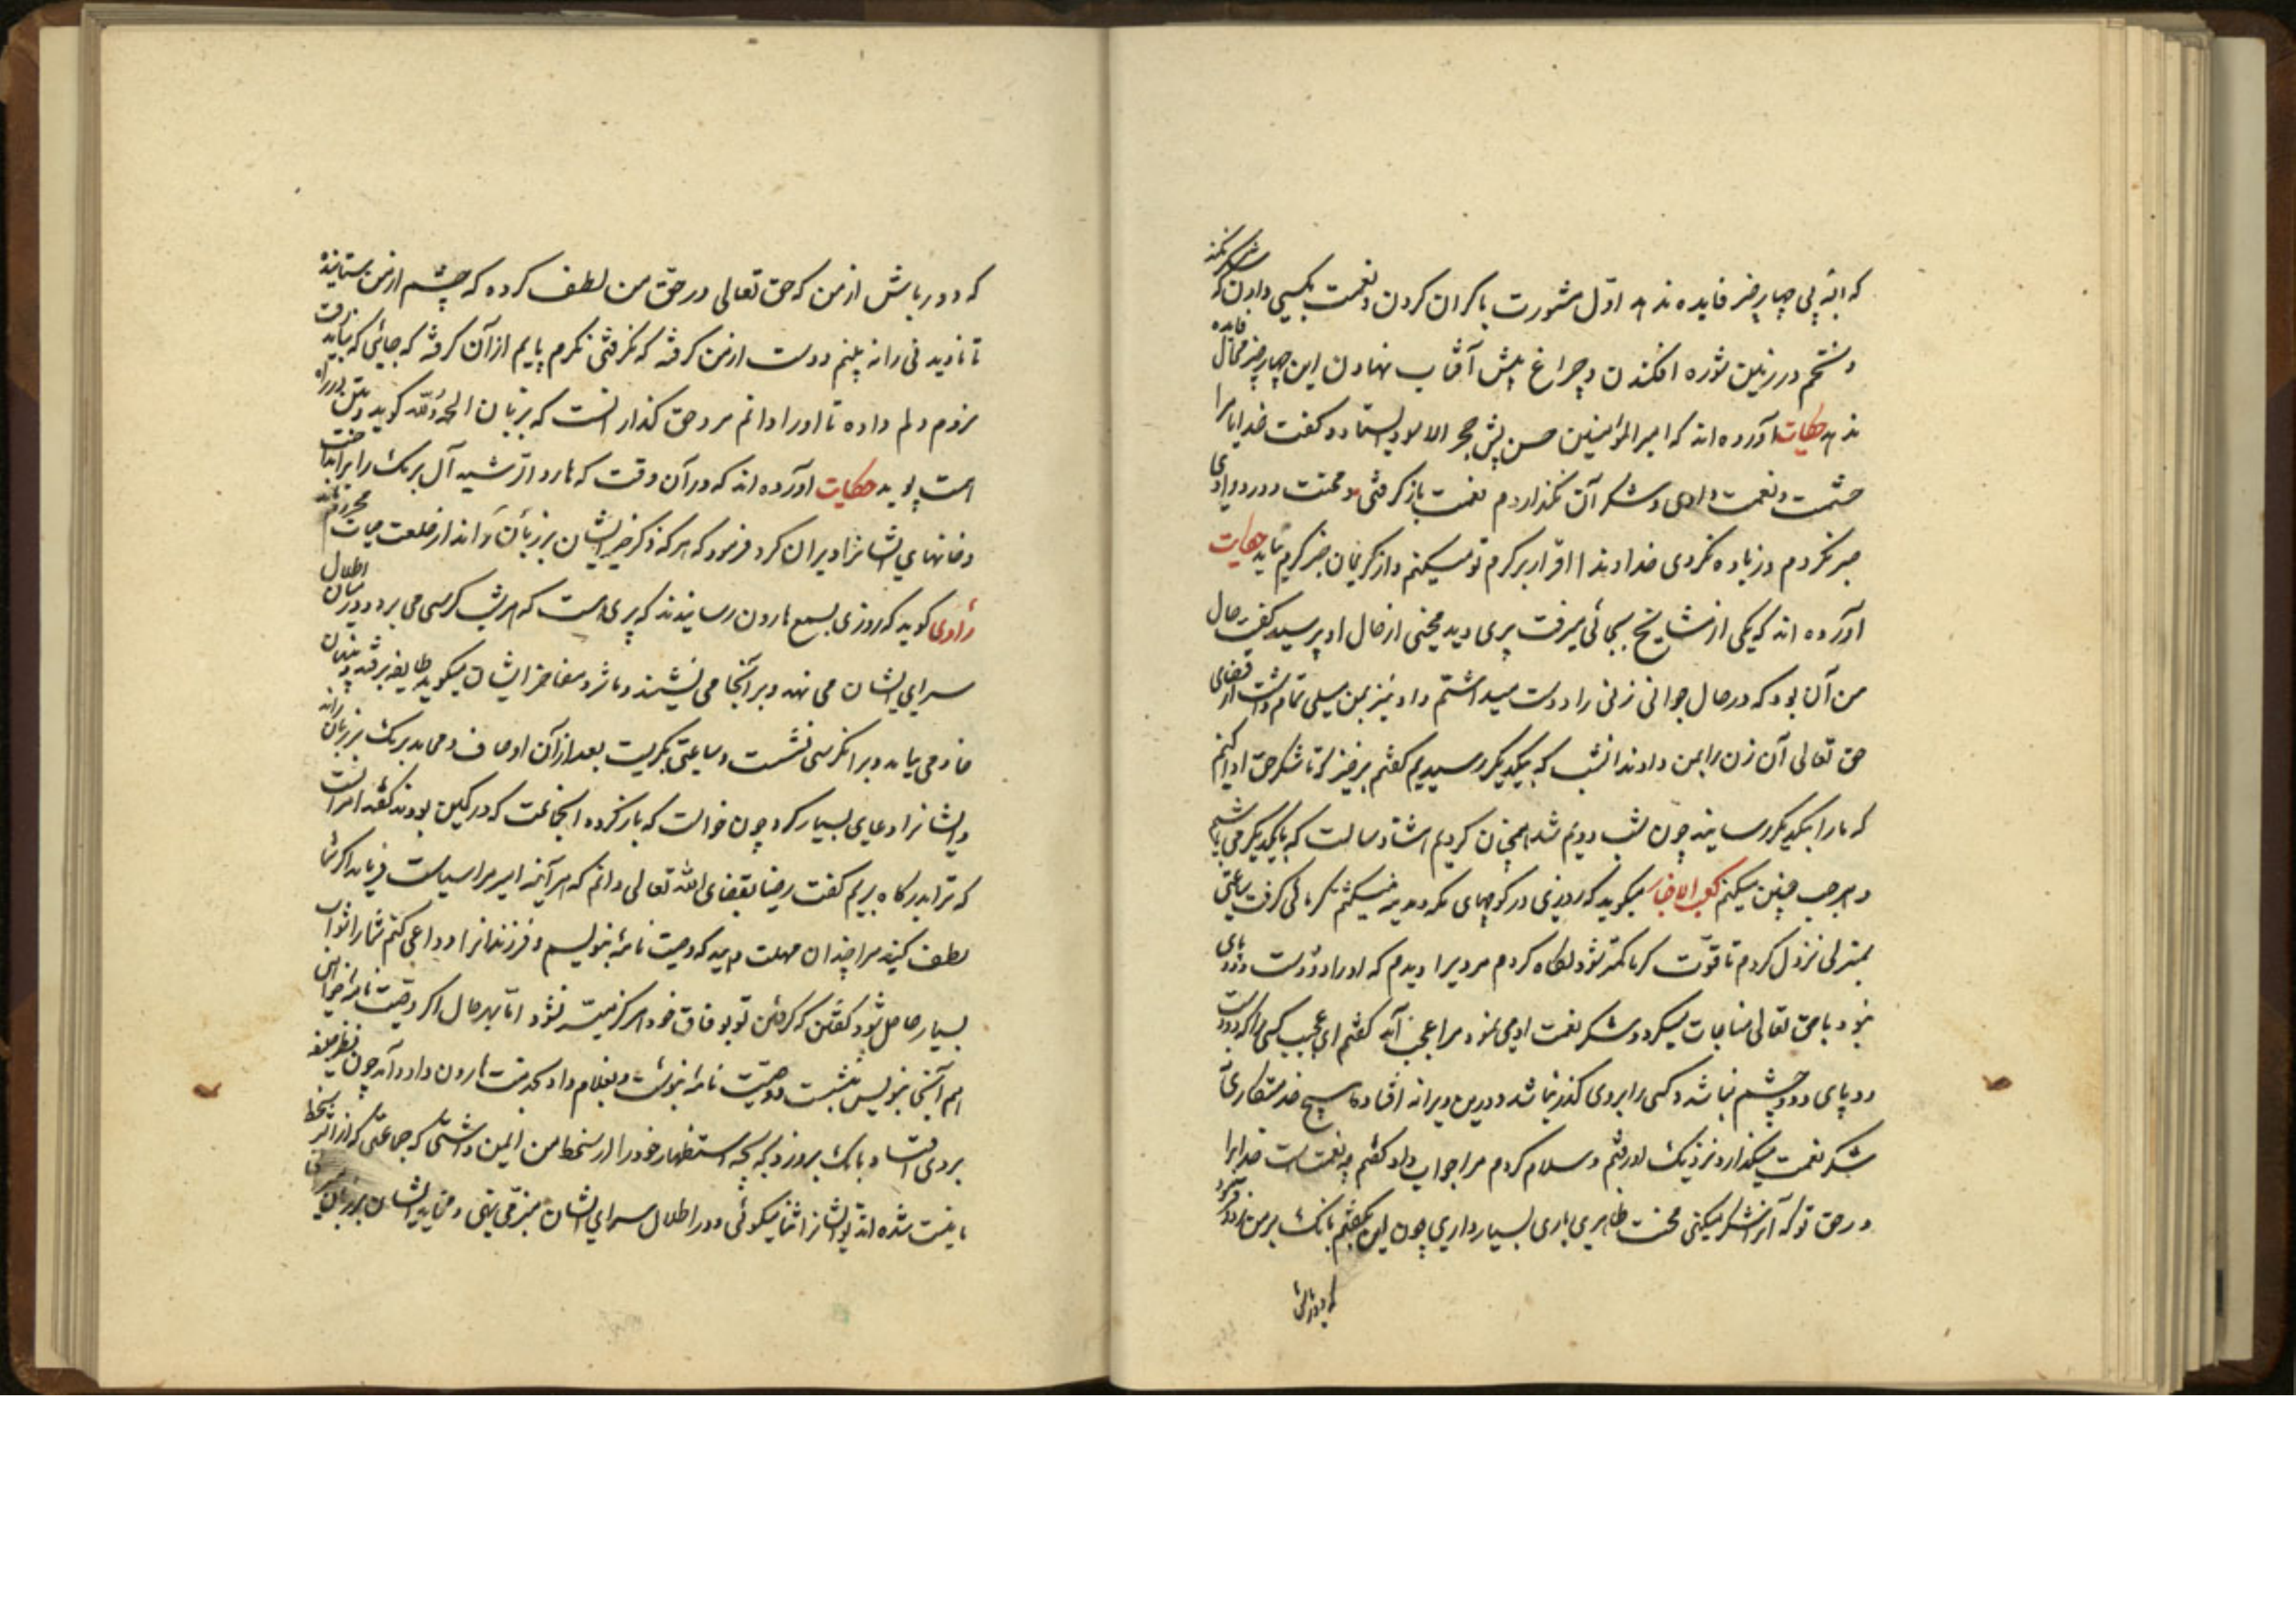 که البته پی چهار چیز فایده ندهد اول مشورت با کران کردن و نعمت بکسی دادن که شکر نکند
و تخم در زمین شوره افکندن و چراغ پیش آفتاب نهادن این چهار چیز فایده
ندهد حکایت آورده اند که امیر المؤمنین حسن پیش حجر الاسود ایستاد و گفت خدایا مرا
حشمت و نعمت دادی و شکر آن نگذاردم نعمت باز گرفتی و محنت و درد دادی
صبر نکردم و زیاده نکردی خداوندا اقرار بر کرم تو میکنم و از کریمان جز کرم نیاید حکایت
آورده اند که یکی از مشایخ بجائی میرفت پیری دید منحنی از حال او پرسید گفت حال
من آن بود که در حال جوانی زنی را دوست میداشتم و او نیز بمن میلی تمام داشت از قضای
حق تعالی آن زن را بمن دادند آنشب که بیکدیگر رسیدیم گفتم برخیز که تا شکر حق ادا کنیم
که ما را بیکدیگر رسانید چون شب دویم شد همچنان کردیم هشتاد سالست که با یکدیگر می باشیم
و هر شب چنین میکنم کعب الاخبار میکوید که روزی در کوچهای مکه و مدینه میگشتم گرمائی گرفت ساعتی
بمنزلی نزول کردم تا قوت گرما کمتر شود نگاه کردم مردیرا دیدم که او را دو دست و دو پای
نبود با حق تعالی مناجات میکرد و شکر نعمت او می نمود مرا عجب آمد گفتم ای عجب کسی را که دو دست
و دو پای و دو چشم نباشد و کسی را بروی گذر نباشد و درین ویرانه افتاده
شکر نعمت میگذارد نزدیک او رفتم و سلام کردم مرا جواب داد گفتم چه نعمتست خدایرا
در حق تو که آنرا شکر میکنی محنت ظاهری باری بسیار داری چون این بگفتم بانک بر من زد و گفت
که دور باش
که دور باش از من که حق تعالی در حق من لطف کرده که چشم از من بستانیده
تا نادیدنی را نه بینم دست از من گرفته که نگرفتنی نگیرم پایم از آن گرفته که جائی که نباید رفت
نروم دلم داده تا او را دانم مرد حق گذار آنست که بزبان الحمد لله گوید و بتن در راه
است پوید حکایت آورده اند که در آن وقت که هارون الرشید آل برمک را برانداخت
و خانهای ایشانرا ویران کرد فرمود که هر که ذکر خیر ایشان بر زبان راند از خلعت حیات محروم ماند
راوی گوید که روزی بسمع هارون رسانیدند که پیری است که هر شب کرسی می برد و در میان اطلال
سرای ایشان می نهد و بر آنجا می نشیند و مآثر و مفاخر ایشان میگوید طایفه برفتند و پنهان
خادمی بیامد و بر آن کرسی نشست و ساعتی بگریست بعد از آن اوصاف و محامد برمک بر زبان راند
و ایشانرا دعای بسیار کرد چون خواست که باز گردد آنجماعت که در کمین بودند گفتند امر آنست
که ترا بدرگاه بریم گفت رضا بقضای الله تعالی دانم که هر آینه امیر مرا سیاست فرماید اگر شما
لطف کنید مرا چندان مهلت دهید که وصیت نامه بنویسم و فرزندانرا وداعی کنم شما را ثواب
بسیار حاصل شود گفتند که رفتن تو بوثاق خود هرگز میسر نشود اما بهر حال اگر وصیت نامه خواهی
هم آنجا بنویس بنشست و وصیت نامه بنوشت و بغلام داد و بخدمت هارون در آمد چون نظر خلیفه
بروی افتاد بانک برو زد که بچه استظهار خود را از سخط من ایمن داشتی که جماعتی که از اثر سخط
نیست شده اند تو ایشانرا ثنا میگوئی و در اطلال سرای ایشان